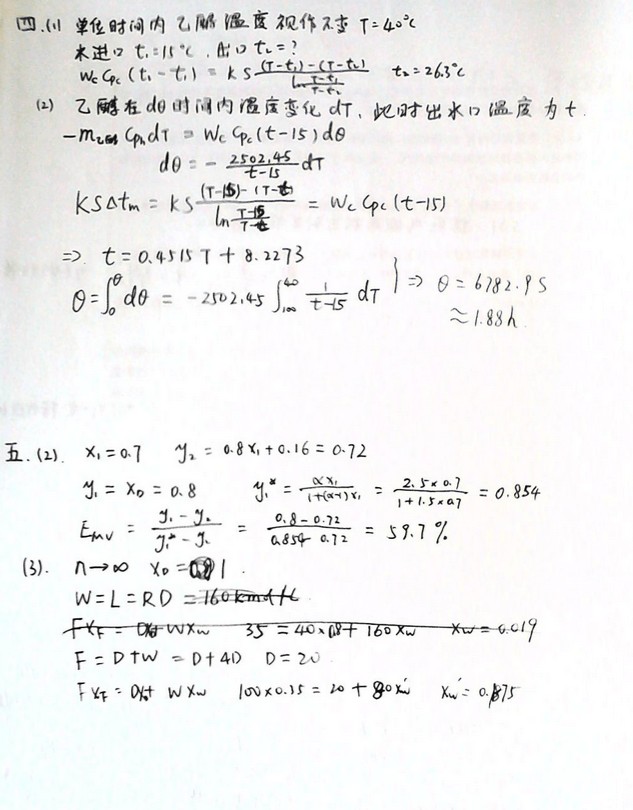 四.(1) 单位时间内乙醇温度视作不变 T=40°C
水进口 t₁=15°C, 出口 t₂=?
WcCpc(t₁-t₁) = KS ((T-t₁)-(T-t₂))/(ln (T-t₁)/(T-t₂)) t₂=26.3°C
(2) 乙醇在dθ时间内温度变化 dT, 此时出水口温度为 t.
-m乙醇 Cph dT = Wc Cpc (t-15) dθ
dθ = - 2502.45/(t-15) dT
KSΔtm = KS ((T-15)-(T-t))/(ln (T-15)/(T-t)) = Wc Cpc (t-15)
⇒ t=0.4515T+8.2273
θ=∫₀^θ dθ = -2502.45 ∫₁₀₀^40 1/(t-15) dT } ⇒ θ=6782.9S
≈1.88h
五.(2). x₁=0.7 y₂=0.8x₁+0.16=0.72
y₁=x_D=0.8 y₁*=αx₁/(1+(α-1)x₁)=2.5×0.7/(1+1.5×0.7)=0.854
E_MV=(y₁-y₂)/(y₁*-y₂)=(0.8-0.72)/(0.854-0.72)=59.7%
(3). n→∞ x_D=1.
W=L=RD =160kmol/h
Fx_F=Dx_D+Wx_W 35=40×0.8+160x_W x_W=0.019
F=D+W=D+4D D=20
Fx_F=Dx_D+Wx_W 100×0.35=20+80x_W' x_W'=0.1875